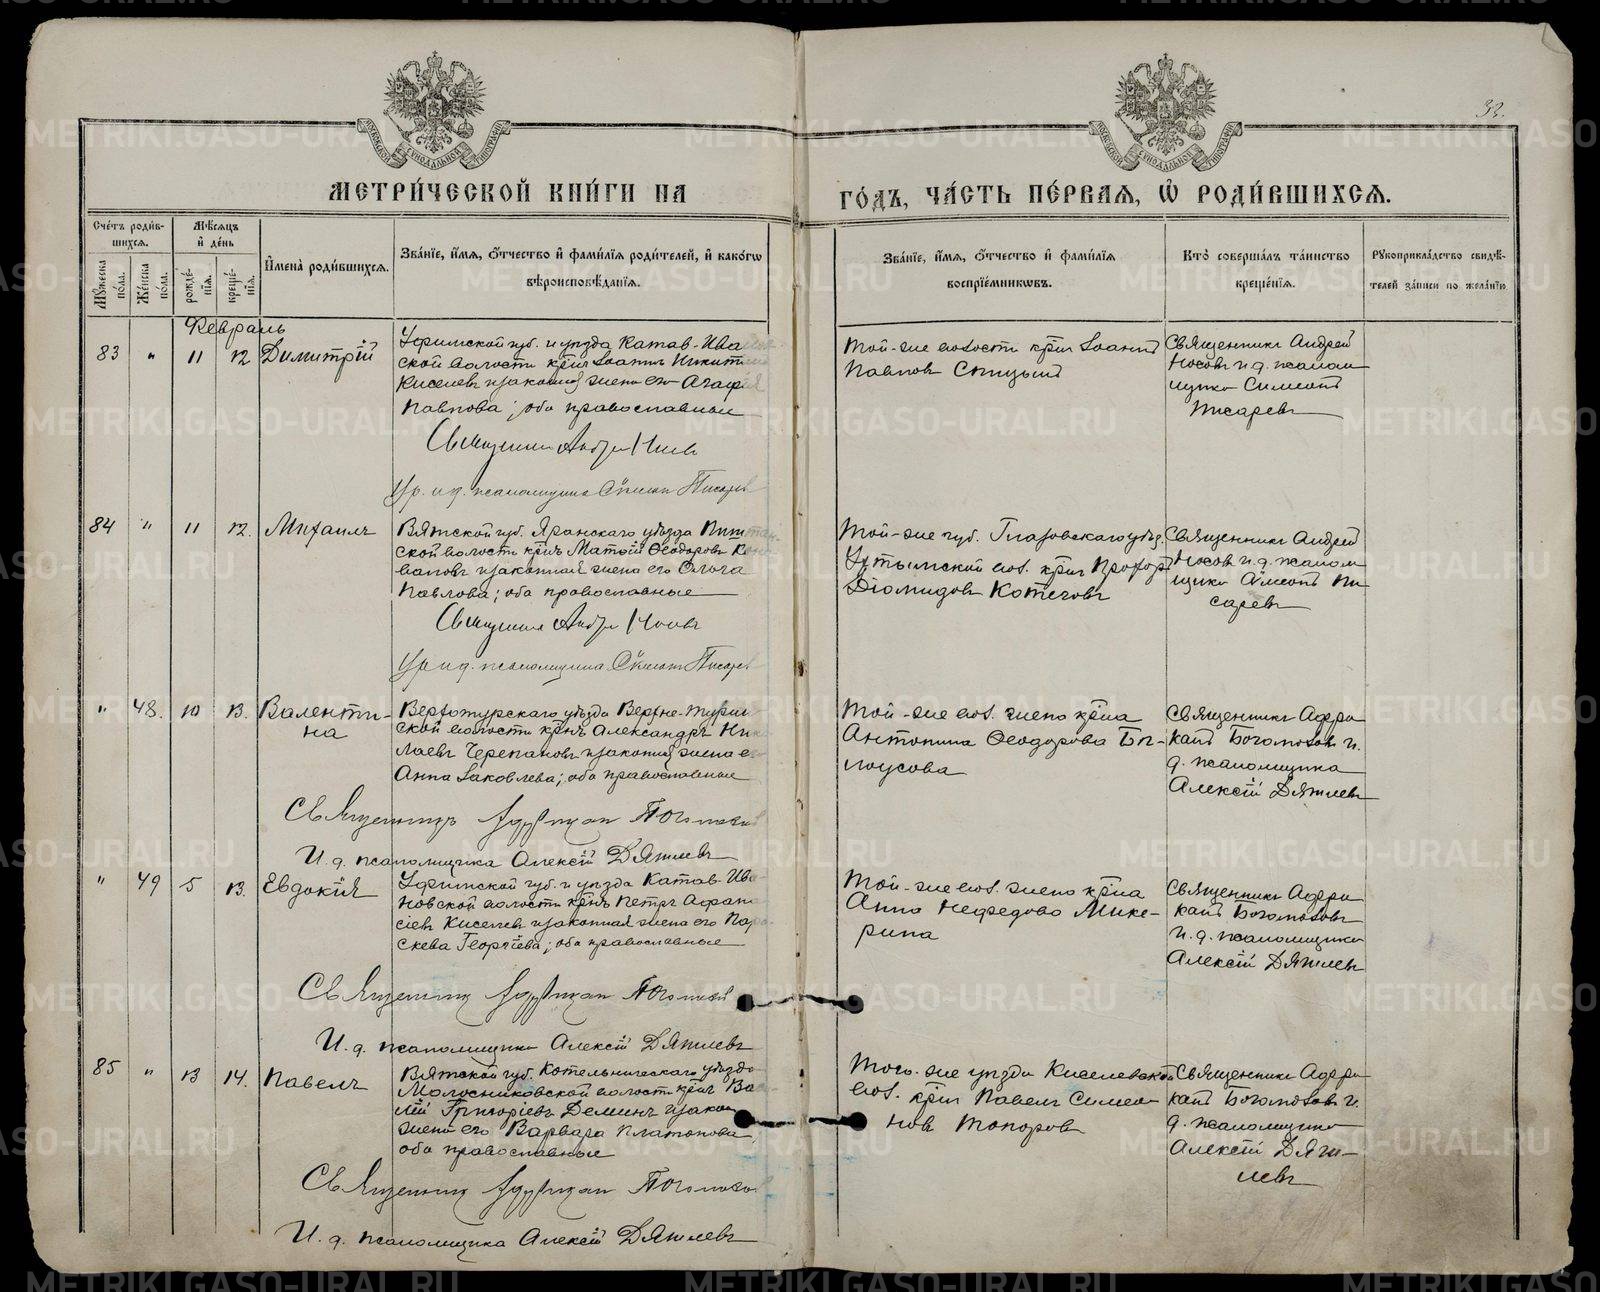 32.
МОСКОВСКОЙ СУНОДАЛЬНОЙ ТИПОГРАФІИ
МОСКОВСКОЙ СУНОДАЛЬНОЙ ТИПОГРАФІИ
МЕТРИ́ЧЕСКОЙ КНИ́ГИ НА
ГО́ДЪ, ЧА́СТЬ ПЕ́РВАЯ, Ѡ҆ РОДИ́ВШИХСЯ.
Сче́тъ роди́в-
шихся.
Мꙋ́жеска по́ла.
Же́нска по́ла.
Мѣ́сяцъ
и҆ де́нь
рожде́-
нїя.
креще́-
нїя.
И҆мена̀ роди́вшихся.
Зва́нїе, и҆́мя, ѻ҆́тчество и҆ фами́лїя роди́телей, и҆ како́гѡ
вѣроисповѣ́данїя.
Зва́нїе, и҆́мя, ѻ҆́тчество и҆ фами́лїя
воспрїе́мниковъ.
Кто̀ соверша́лъ та́инство
креще́нїя.
Рꙋкоприкла́дство свидѣ́-
телей за́писи по жела́нїю
Февраль
83 " 11 12 Димитрій
Уфимской губ. и уѣзда Катав-Ива
ской волости кр̃нъ Іоаннъ Никит
Киселевъ и законная жена его Агафія
Павлова; оба православные
Священникъ Андрей Носовъ
Ур. и. д. псаломщика Симеонъ Писаревъ
Той-же волости кр̃нъ Іоаннъ
Павловъ Спицынъ
Священникъ Андрей
Носовъ и. д. псалом
щика Симеонъ
Писаревъ
84 " 11 12. Михаилъ
Вятской губ. Яранскаго уѣзда
ской волости кр̃нъ Матѳій Ѳеодоровъ
вановъ и законная жена его Ольга
Павлова; оба православные
Священникъ Андрей Носовъ
Ур. и. д. псаломщика Симеонъ Писаревъ
Той-же губ. Глазовскаго уѣзд.
Ухтымской вол. кр̃нъ Прохоръ
Діомидовъ Котеговъ
Священникъ Андрей
Носовъ и. д. псалом
щика Симеонъ Пи
саревъ
" 48. 10 13. Валенти-
на
Верхотурскаго уѣзда Верхне-Турин
ской волости кр̃нъ Александръ Ник
лаевъ Черепановъ и законная жена е
Анна Іаковлева; оба православные
Священникъ Африкан Богомолов
И. д. псаломщика Алексій Дягилевъ
Той-же вол. жена кр̃на
Антонина Ѳеодорова Бѣ-
лоусова
Священникъ Афри
канъ Богомоловъ и.
д. псаломщика
Алексій Дягилевъ
" 49 5 13. Евдокія
Уфимской губ. и уѣзда Катав-Ива
новской волости кр̃нъ Петръ Афана
сіевъ Киселевъ и законная жена его Пара
скева Георгіева; оба православные
Священникъ Африкан Богомолов
И. д. псаломщика Алексій Дягилевъ
Той-же вол. жена кр̃на
Анна Нефедова Мике-
рина
Священникъ Афри
канъ Богомоловъ
и. д. псаломщика
Алексій Дягилевъ
85 " 13 14. Павелъ
Вятской губ. Котельническаго уѣзда
Молосниковской волости кр̃нъ Ва
лій Григоріевъ Деминъ и закон
жена его Варвара Платонова
оба православные
Священникъ Африкан Богомолов
И. д. псаломщика Алексій Дягилевъ
Того-же уѣзда Киселевской
вол. кр̃нъ Павелъ Симео-
новъ Топоровъ
Священникъ Афри
канъ Богомоловъ и.
д. псаломщика
Алексій Дяги-
левъ
METRIKI.GASO-URAL.RU